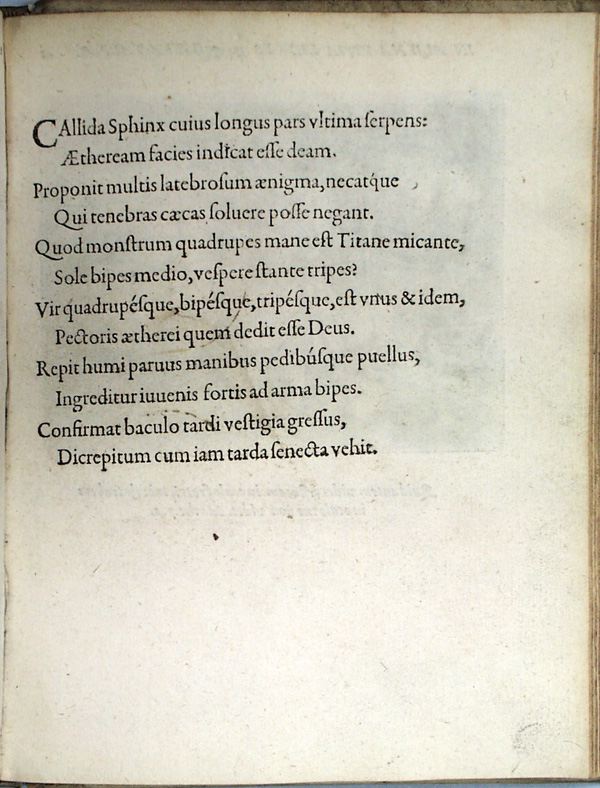 CAllida Sphinx cuius longus pars vltima ſerpens:
Ætheream facies indicat eſſe deam.
Proponit multis latebroſum ænigma, necatq́ue
Qui tenebras cæcas ſoluere poſſe negant.
Quod monſtrum quadrupes mane eſt Titane micante,
Sole bipes medio, veſpere ſtante tripes?
Vir quadrupéſque, bipéſque, tripéſque, eſt vnus & idem,
Pectoris ætherei quem dedit eſſe Deus.
Repit humi paruus manibus pedibúſque puellus,
Ingreditur iuuenis fortis ad arma bipes.
Confirmat baculo tardi veſtigia greſſus,
Dicrepitum cum iam tarda ſenecta vehit.